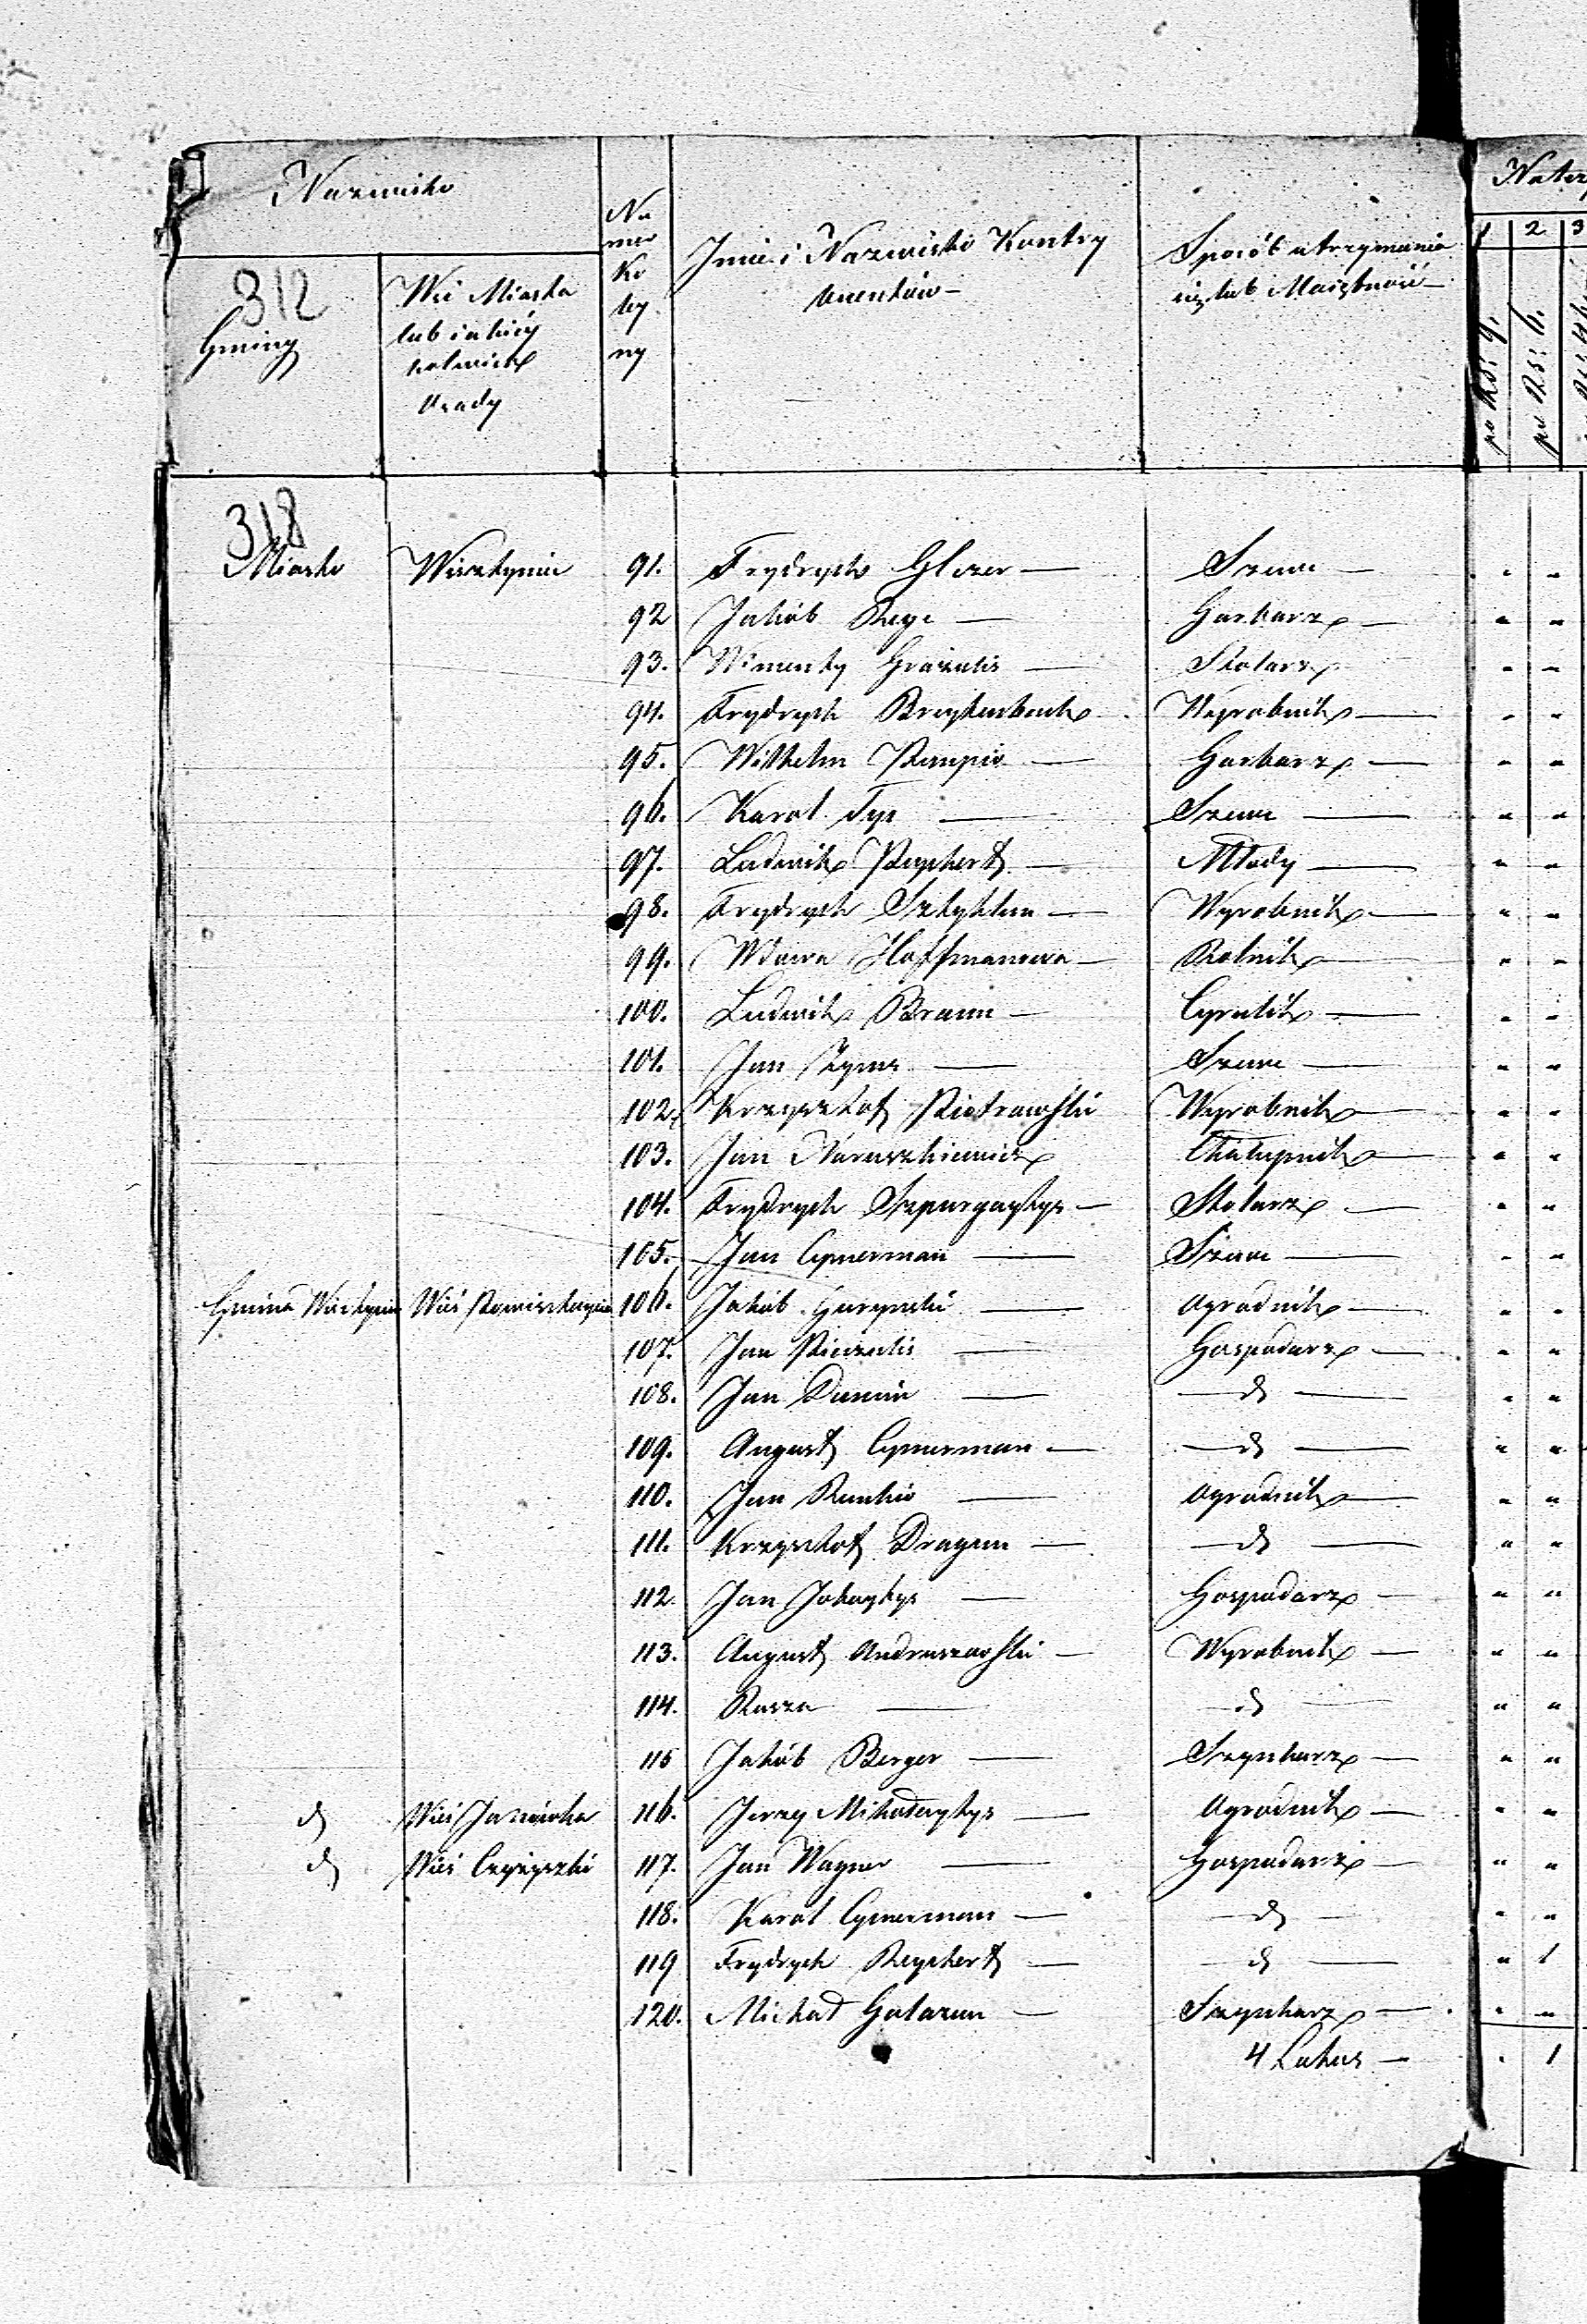 Nazwisko
312
Gminy
Wsi Miasta
lub iakiéy
kolwiek
Osady
Nu
mer
Ko
ley
ny
Jmie i Nazwisko Kontry
buentów —
Sposób utrzymania
się lub Maiętność —
1 2 3
po RSr 9.
po RSr 6.
318
Miasto Wisztyniec 91. Frydrych Glezer — Szewc —
92 Jakób Rege — Garbarz —
93. Wincenty Grazulis — Stolarz
94. Frydrych Breytenbach Wyrobnik —
95. Wilhelm — Garbarz —
96. Karol Tys — Szewc —
97. Ludwik Reychert — Młody —
98. Frydrych — Wyrobnik —
99. Wdowa Hoffmanowa — Rolnik —
100. Ludwik Braun — Cyrulik —
101. Jan — Szewc —
102. Krzysztof Piotrowski Wyrobnik —
103. Jan Naruszkiewicz Chałupnik —
104. Frydrych Szpurgaytys — Stolarz —
105. Jan Cymerman — Szewc —
Gmina Wisztyniec Wieś 106. Jakób Guryncki — Ogrodnik —
107. Jan — Gospodarz —
108. Jan — — d —
109. August Cymerman — — d —
110. Jan — Ogrodnik —
111. Krzysztof Dragun — — d —
112. Jan Jokaytys — Gospodarz —
113. August Andruszewski — Wyrobnik —
114. — d —
115 Jakób Berger — Szynkarz —
d Wieś Janówka 116. Jerzy Mikołaytys — Ogrodnik —
d Wieś Czyżyszki 117. Jan Wagner — Gospodarz —
118. Karol Cymerman — — d —
119 Frydrych Reychert — — d — " 1
120. Michał — Szynkarz —
4 Latus — . 1